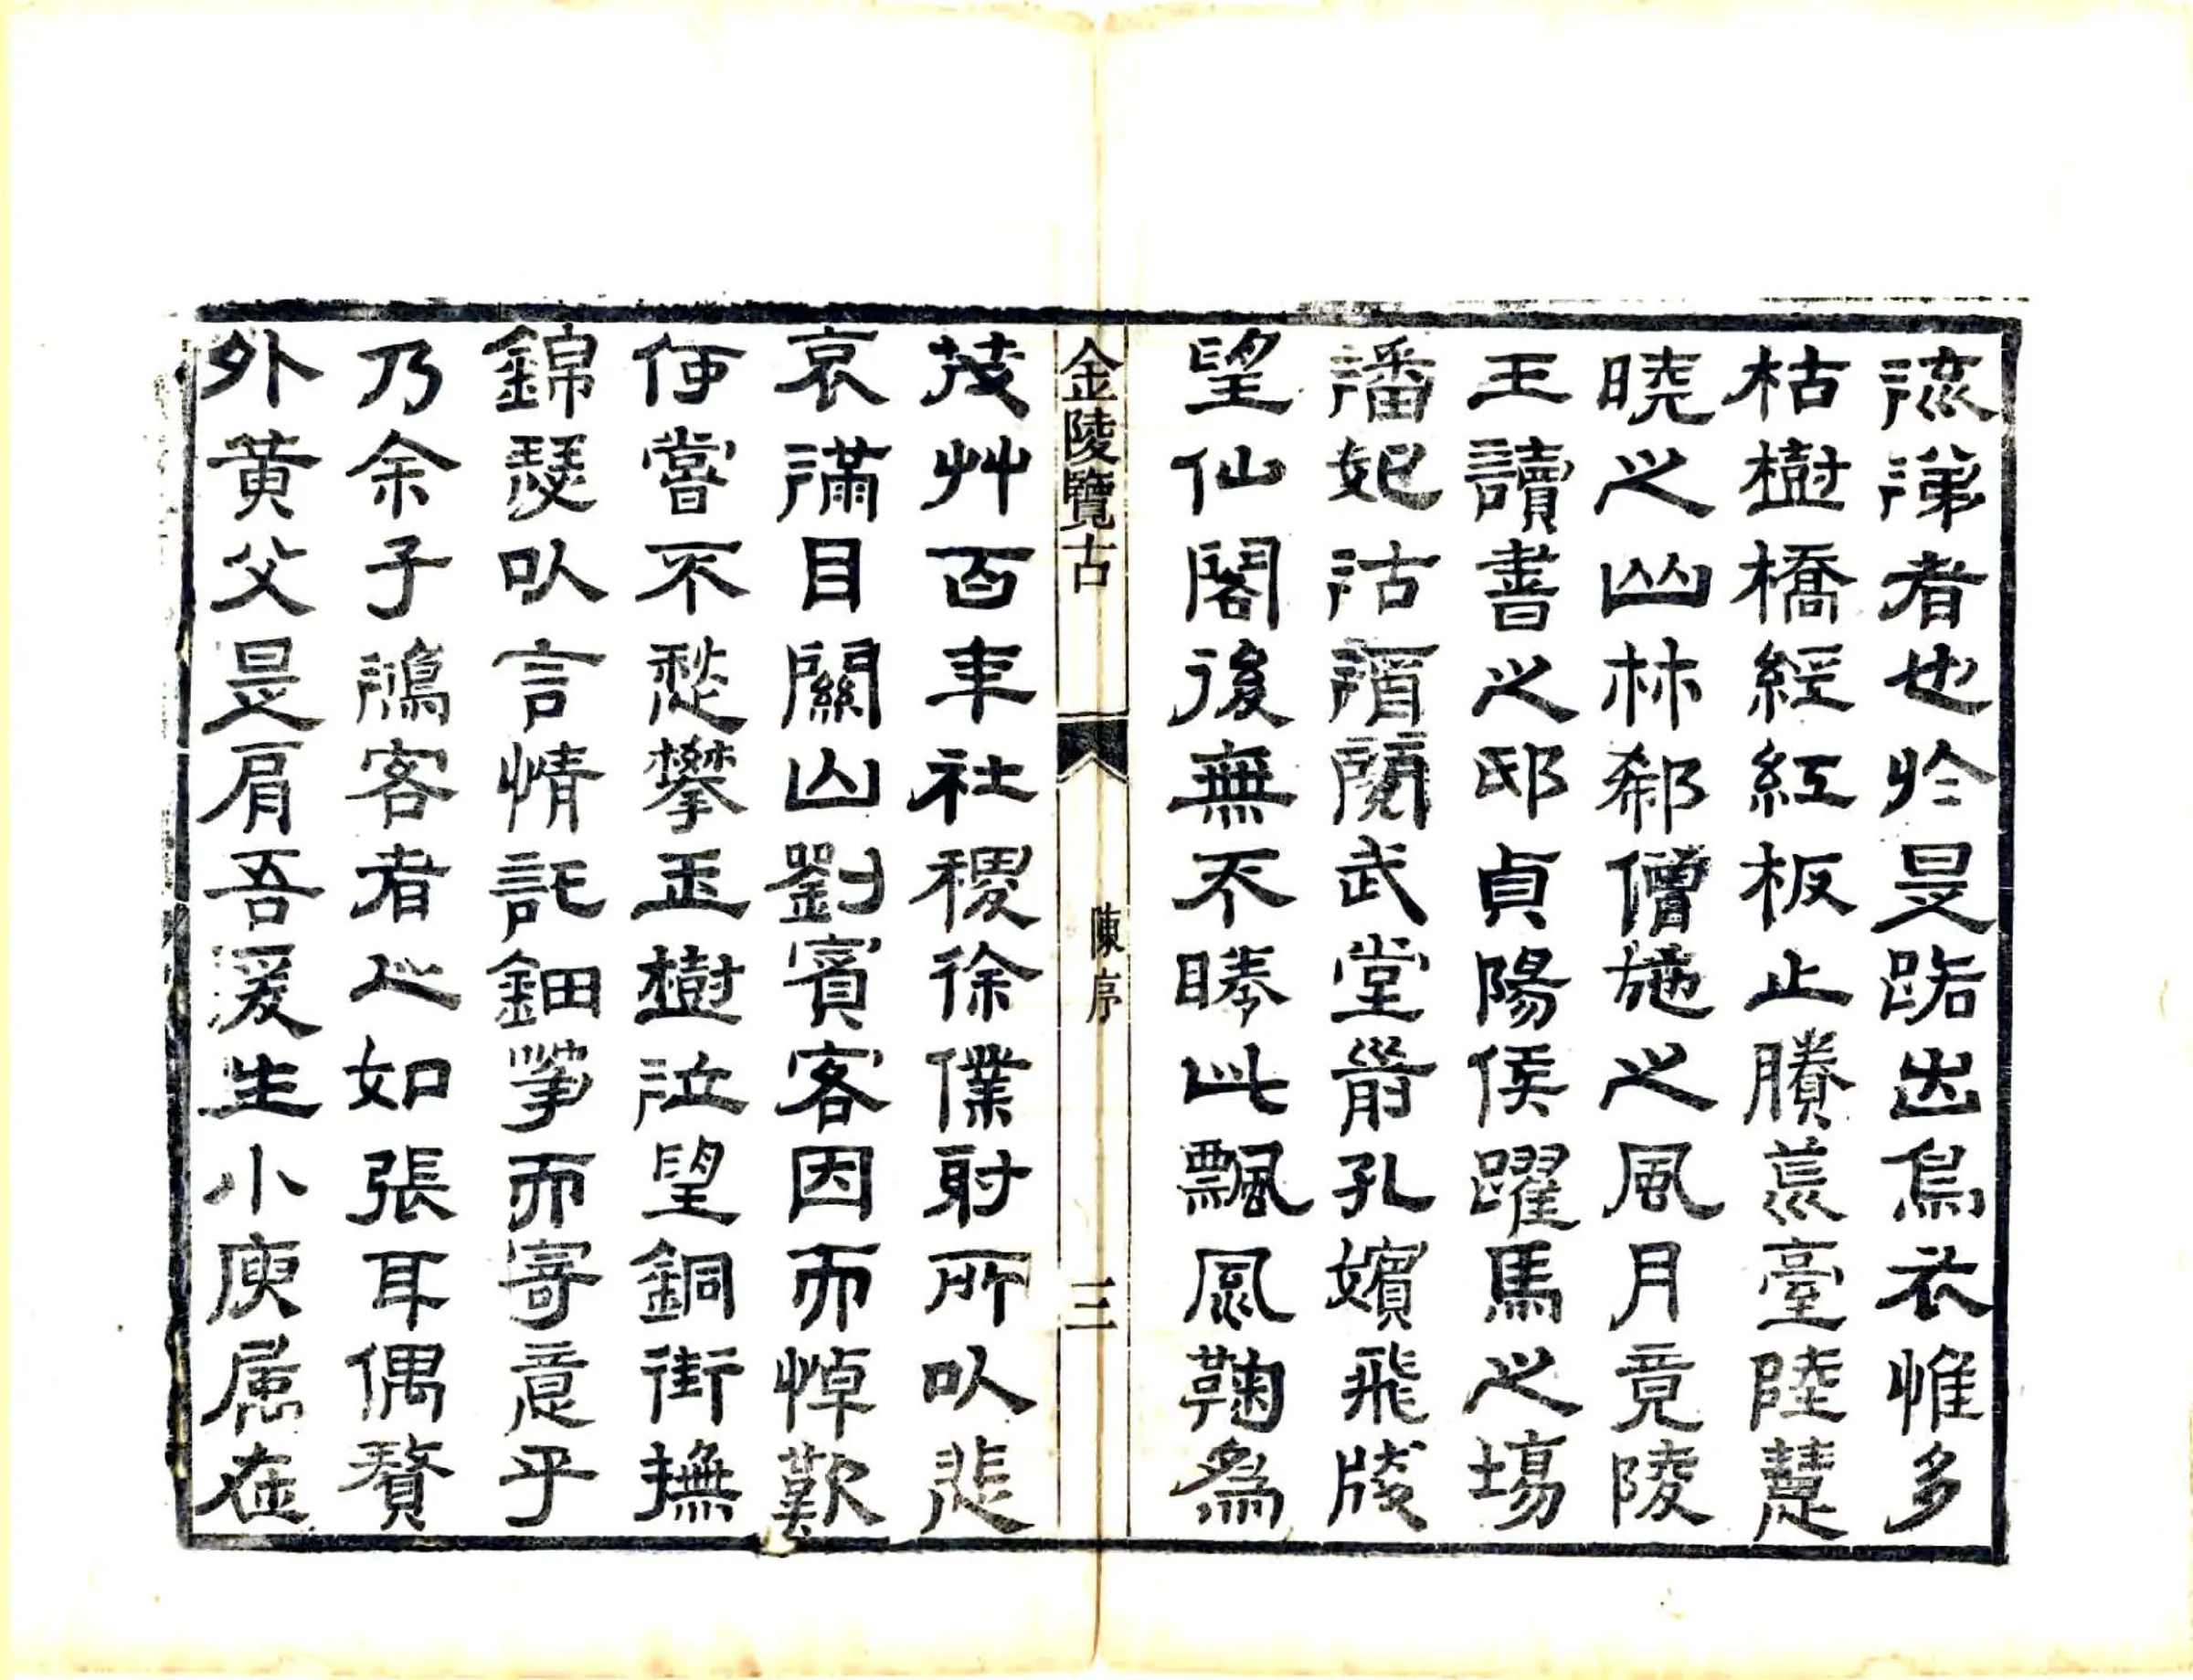 流涕者也於是路出烏衣惟多
枯樹橋經紅板止賸荒臺陸慧
曉之山林郗僧施之風月竟陵
王讀書之邸貞陽侯躍馬之場
潘妃沽酒閱武堂前孔嬪飛牋
望仙閣後無不勝此飄風鞠為
金陵覽古 陳序 三
茂艸百年社稷徐僕射所以悲
哀滿目關山劉賓客因而悼歎
何嘗不愁攀玉樹泣望銅街撫
錦瑟以言情託鈿箏而寄意乎
乃余子鴻客者心如張耳偶贅
外黃父是肩吾爰生小庾屬在